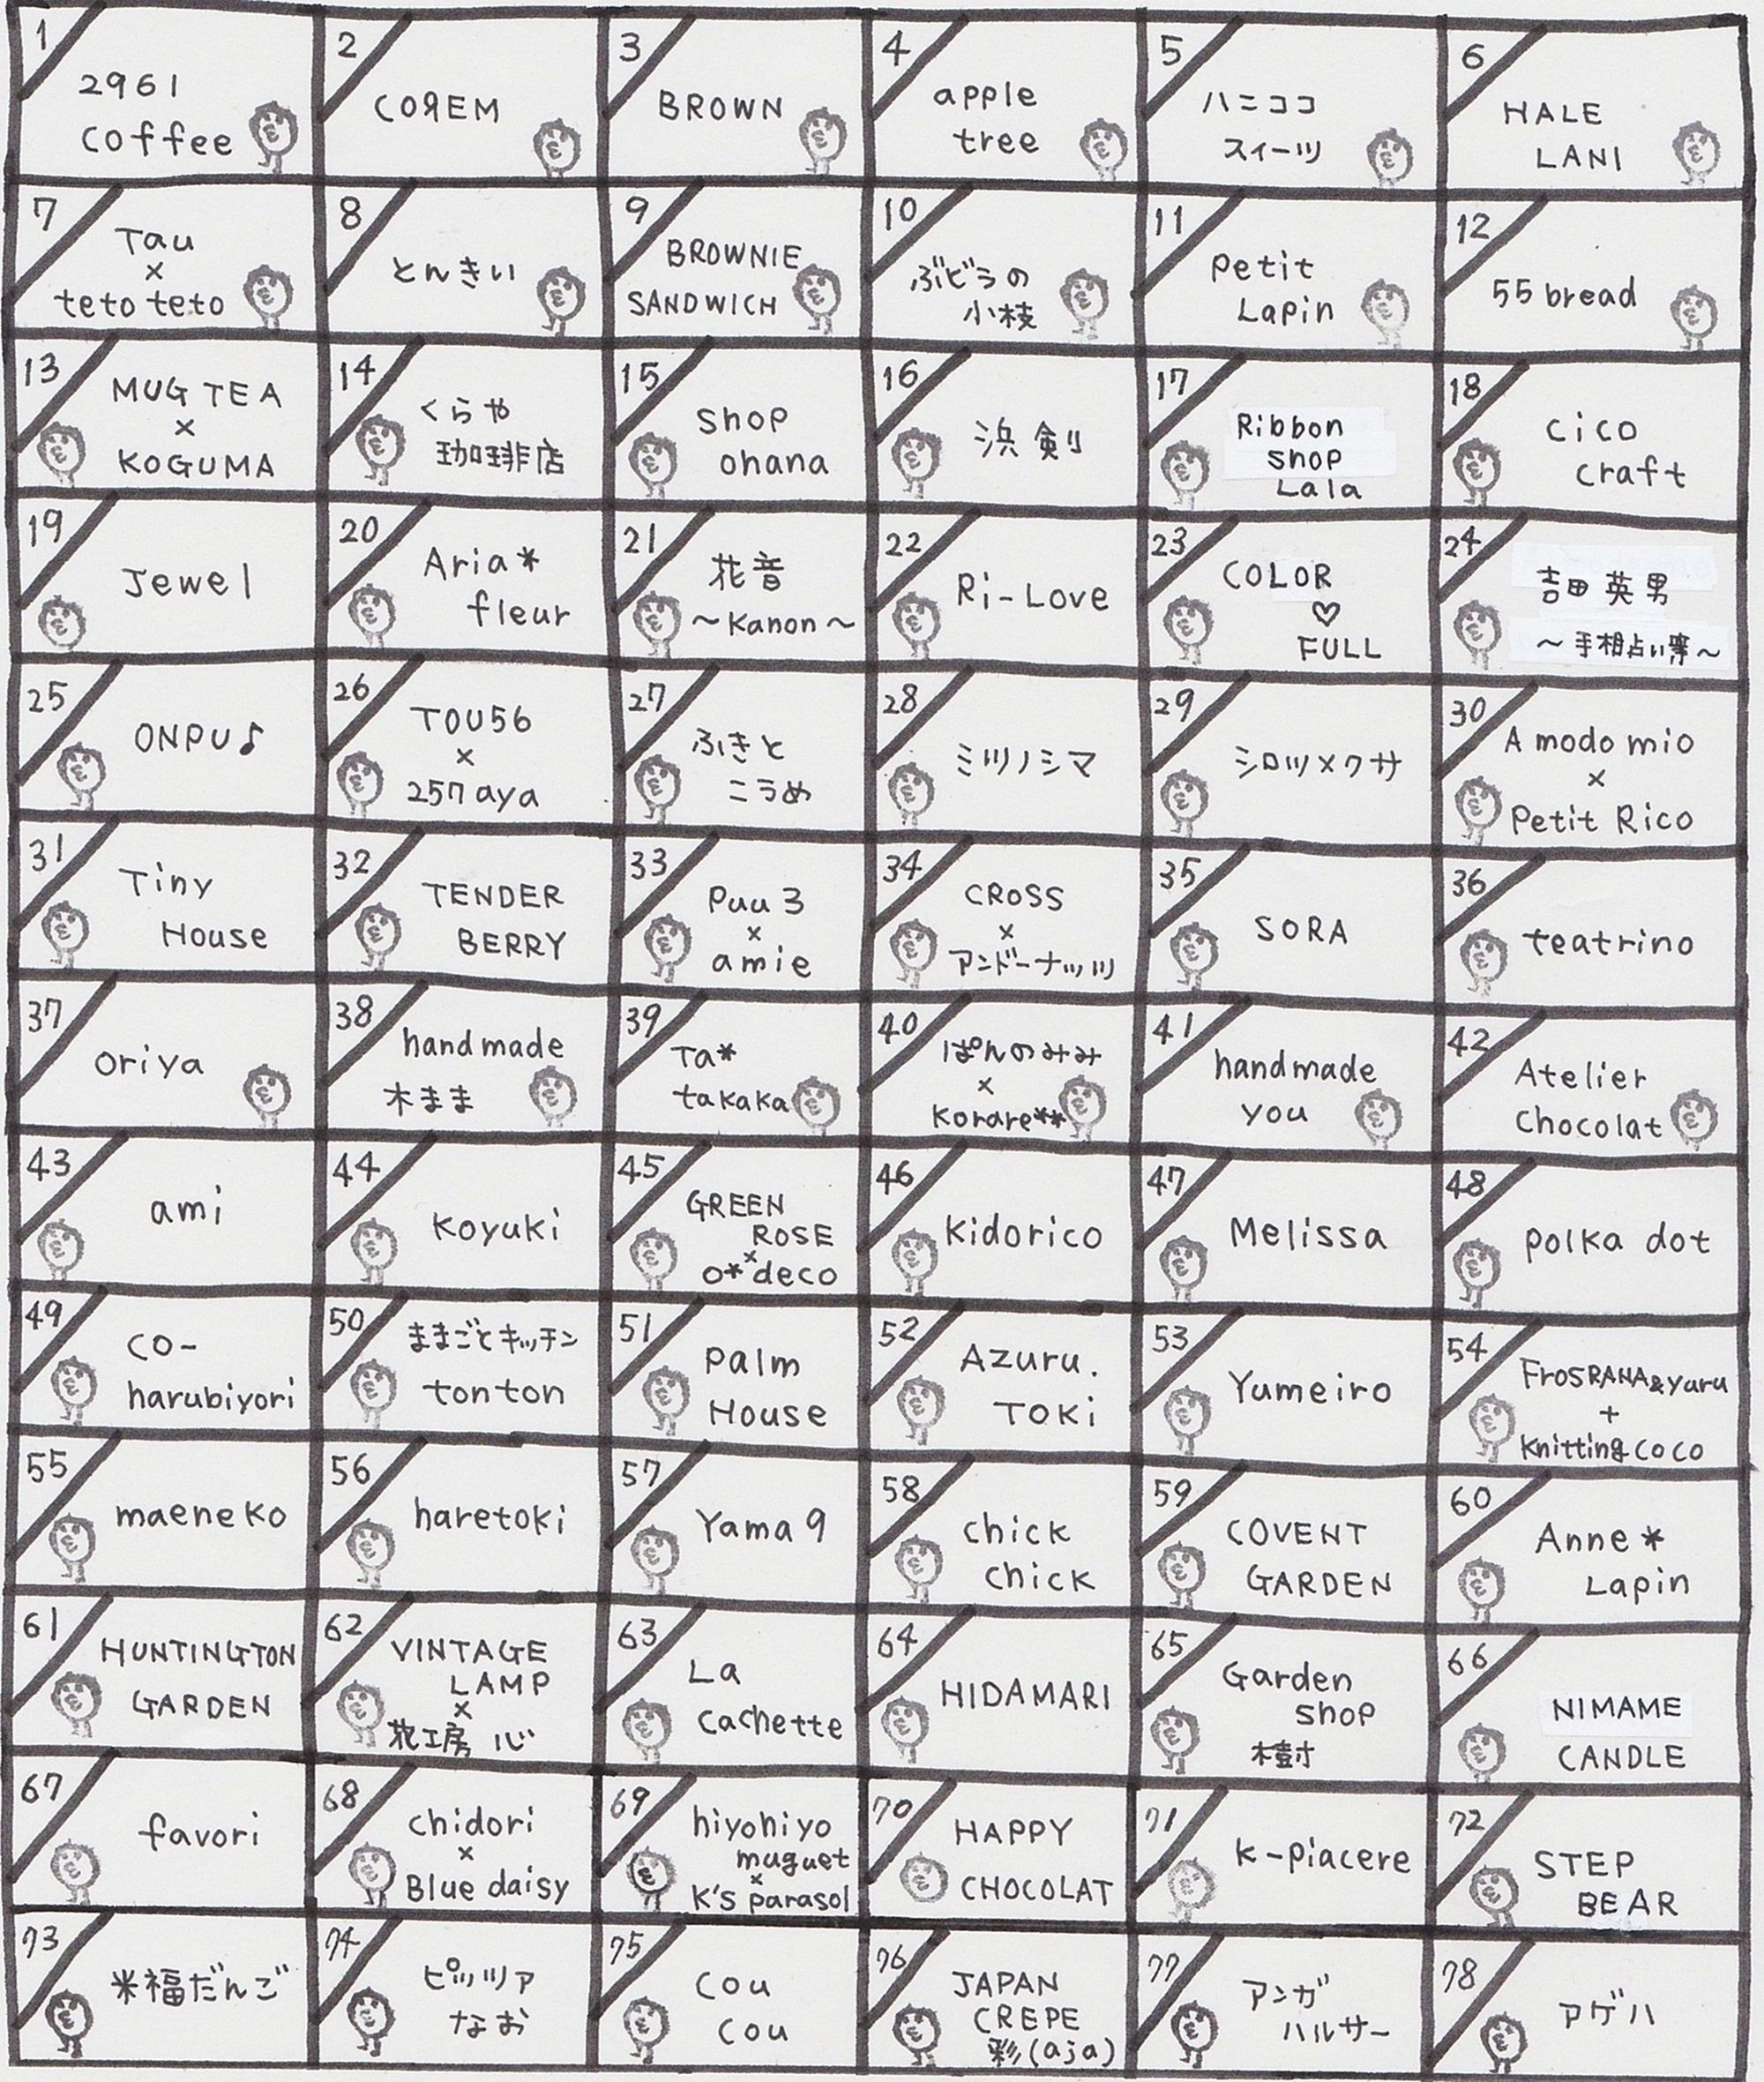 1
2961
coffee
2
COЯEM
3
BROWN
4
apple
tree
5
ハニココ
スィーツ
6
HALE
LANI
7
Tau
×
teto teto
8
とんきい
9
BROWNIE
SANDWICH
10
ぶどうの
小枝
11
Petit
Lapin
12
55 bread
13
MUG TEA
×
KOGUMA
14
くらや
珈琲店
15
shop
ohana
16
浜剣
17
Ribbon
shop
Lala
18
cico
craft
19
Jewel
20
Aria*
fleur
21
花音
~Kanon~
22
Ri-Love
23
COLOR
♡
FULL
24
吉田英男
~手相占い寧~
25
ONPU♪
26
TOU56
×
257aya
27
ふきと
こうめ
28
ミツノシマ
29
シロツメクサ
30
A modo mio
×
Petit Rico
31
Tiny
House
32
TENDER
BERRY
33
Puu 3
×
amie
34
CROSS
×
アンドーナッツ
35
SORA
36
teatrino
37
oriya
38
handmade
木まま
39
Ta*
takaka
40
ぱんのみみ
×
Korare**
41
handmade
you
42
Atelier
Chocolat
43
ami
44
Koyuki
45
GREEN
ROSE
×
o*deco
46
Kidorico
47
Melissa
48
polka dot
49
co-
harubiyori
50
ままごとキッチン
tonton
51
Palm
House
52
Azuru.
TOKi
53
Yumeiro
54
FrosRANA&yuru
+
Knitting coco
55
maeneko
56
haretoki
57
Yama 9
58
chick
chick
59
COVENT
GARDEN
60
Anne*
Lapin
61
HUNTINGTON
GARDEN
62
VINTAGE
LAMP
×
花工房 心
63
La
cachette
64
HIDAMARI
65
Garden
shop
樹
66
NIMAME
CANDLE
67
favori
68
chidori
×
Blue daisy
69
hiyohiyo
muguet
×
K's parasol
70
HAPPY
CHOCOLAT
71
K-piacere
72
STEP
BEAR
73
米福だんご
74
ピッツァ
なお
75
cou
cou
76
JAPAN
CREPE
彩(aja)
77
アンガ
ハルサー
78
アゲハ